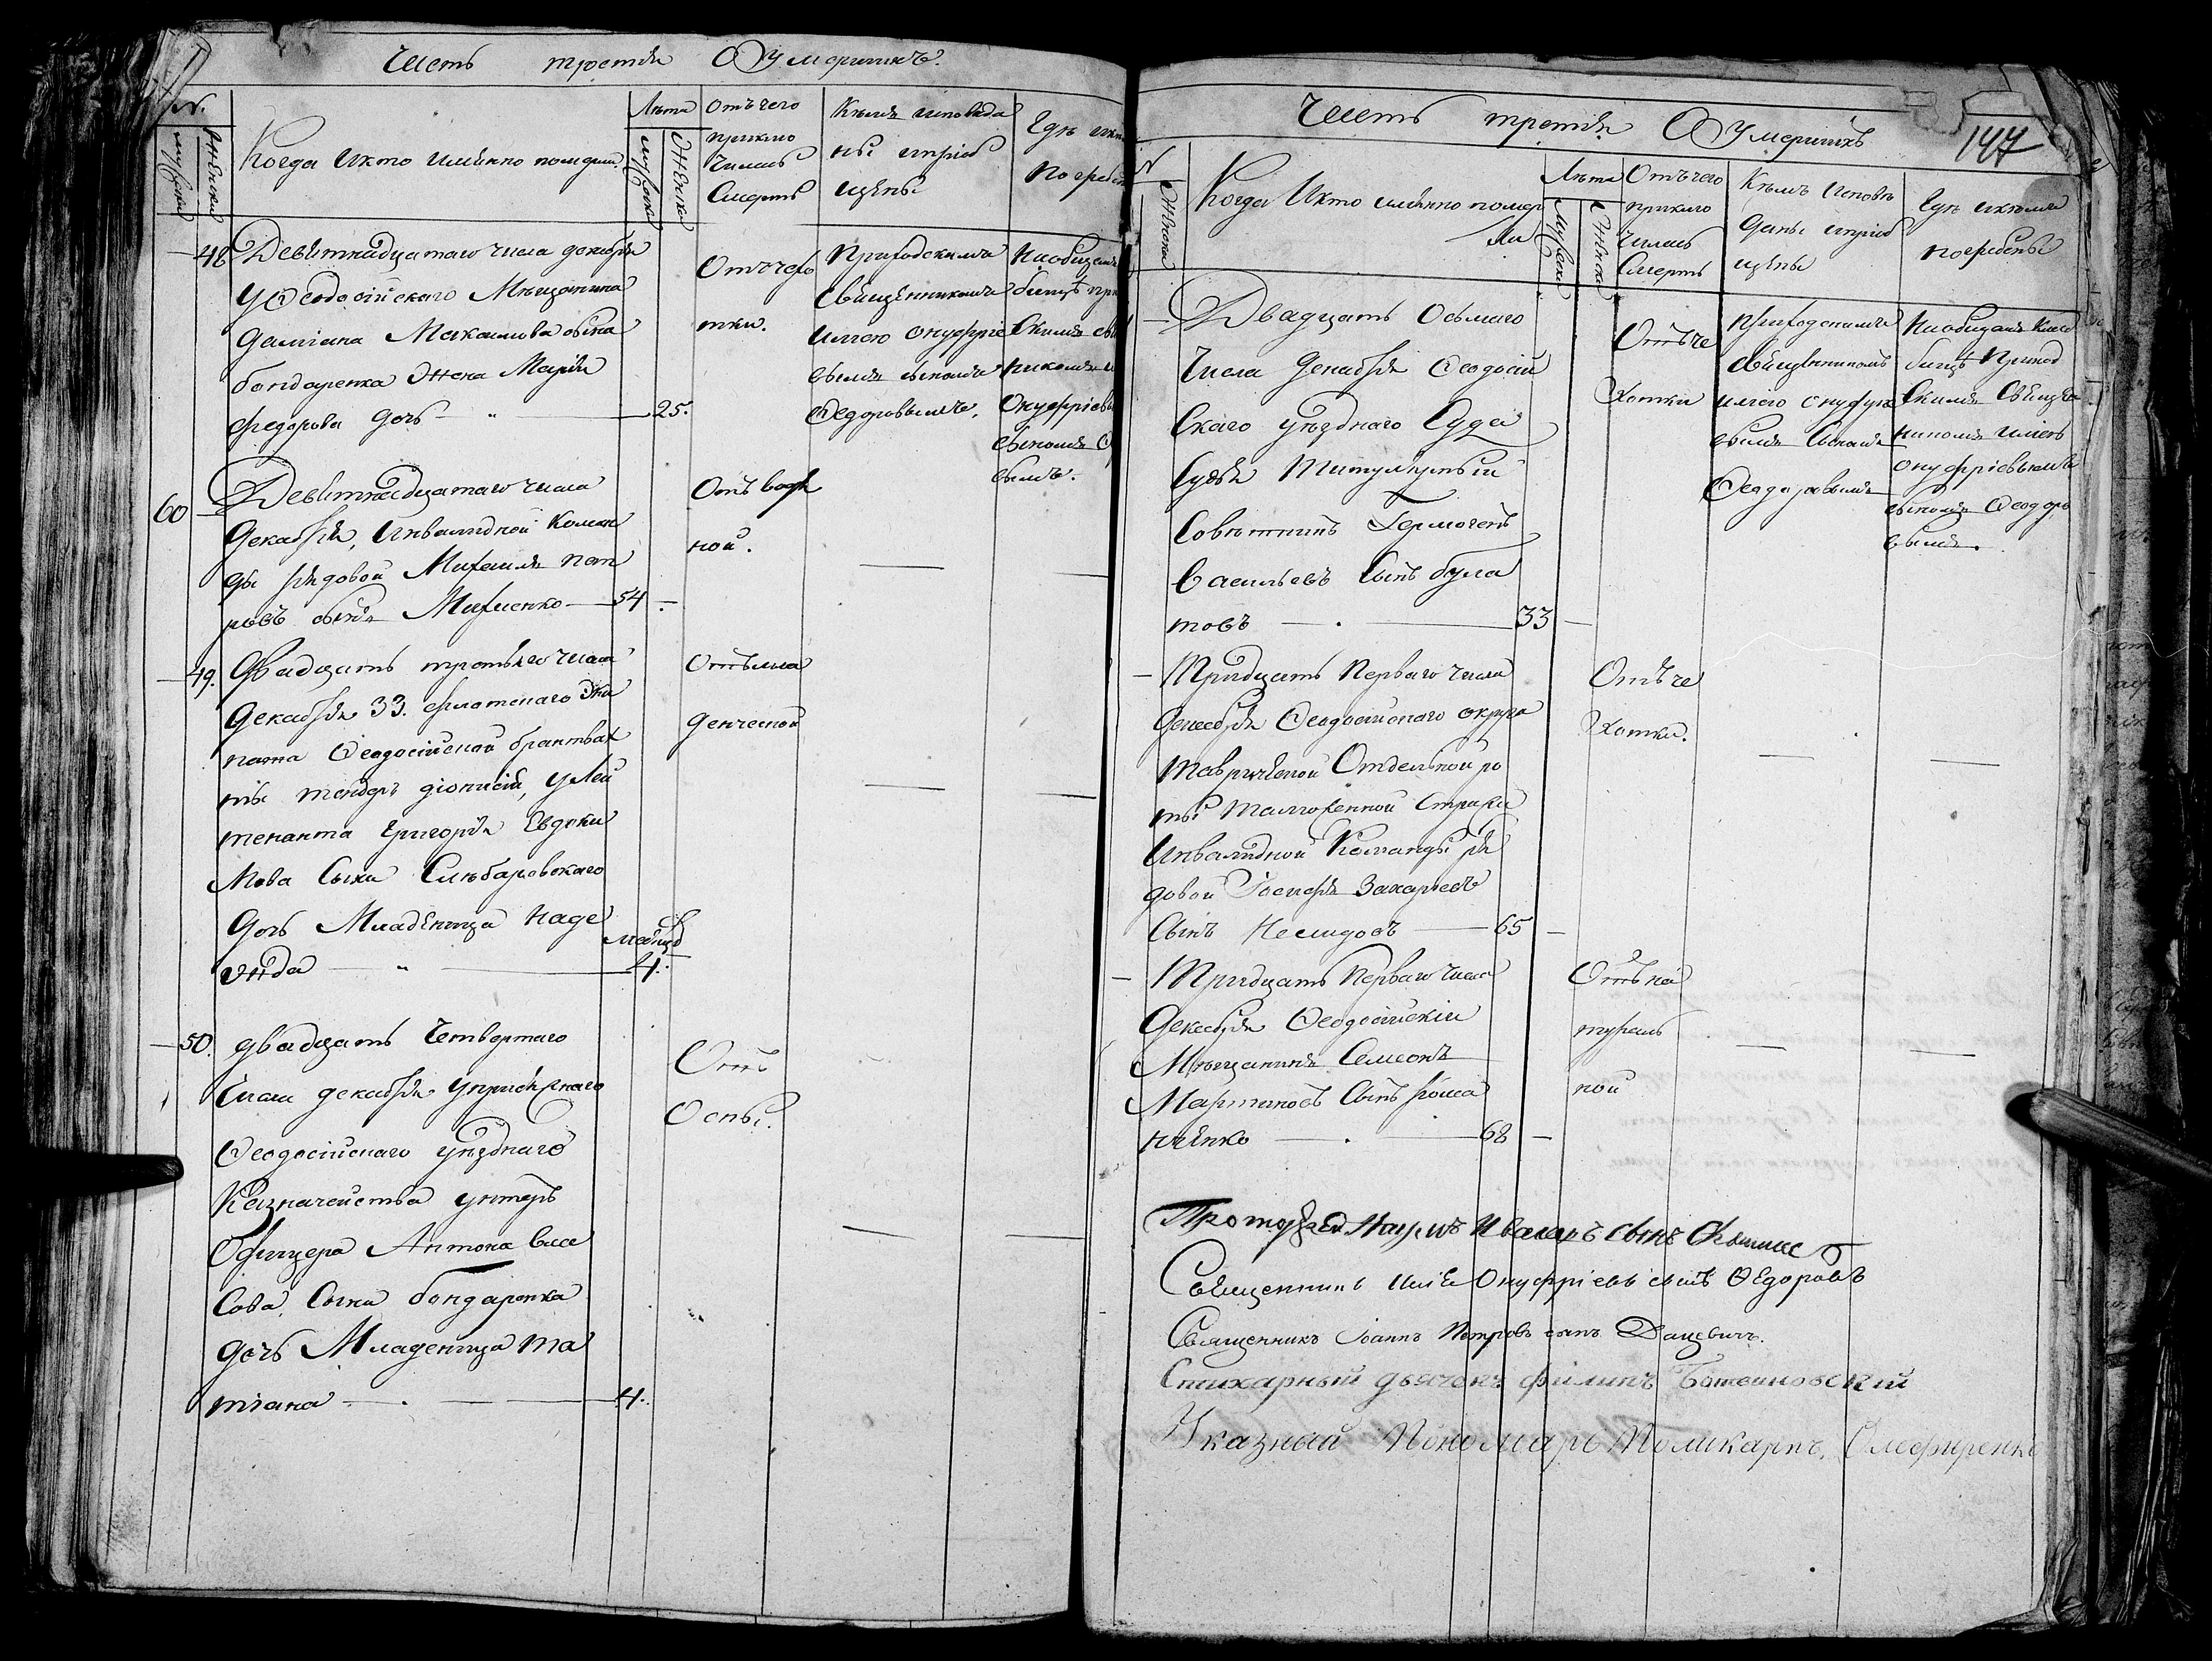 Часть третія О Умершихъ.
№.
мужска
женска
Когда и кто имянно помершій
Лѣта
мужска
женска
Отъ чего
приклю
чилась
Смерть
Кѣмъ исповѣда
ны и пріоб
щены
Гдѣ и кѣ
Погребен
48 Девятнадцатаго числа декабря
У Ѳеодосійскаго Мѣщанина
Даміана Максимова сына
бондаренка Жена Марія
Федорова дочь 25.
Отъ чехо
тки.
Приходскимъ
Священникомъ
Иліею Онуфріе
вымъ сыномъ
Ѳедоровымъ.
На общемъ
Онуфріевы
сыномъ Ѳ
вымъ.
60 Девятнадцатаго числа
Декабря, Инвалидной Коман
ды рядовой Михаилъ Пет
ровъ сынъ Михненко 54
Отъ водя
ной.
49. Двадцать третьяго числа
Декабря 33. флотскаго Эки
пажа Ѳеодосійской брантвах
ты тендеръ Діонисій, у Лей
тенанта Григорія Евдоки
мова Сына
Дочь Младенца Наде
жда 4.
Отъ мла
денческой
50. двадцать Четвертаго
Числа декабря у присяжнаго
Ѳеодосійскаго уѣзднаго
Казначейства унтеръ
Офицера Антона Влас
сова, Сына бондаренка
дочь Младенца Та
тіана 4.
Отъ
Оспы.
Часть третія О Умершихъ
147
№
женска
Когда И кто имянно помер
ли
Лѣта
Мужска
Женска
Отъ чего
приклю
чилась
Смерть
Кѣмъ исповѣ
даны и пріоб
щены
Гдѣ и кѣмъ
погребены
Двадцать Осьмаго
Числа Декабря Ѳеодосій
Скаго уѣзднаго Суда
Судья Титулярный
Совѣтникъ Гермогенъ
Васильевъ Сынъ Була
товъ 33
Отъ че
Хотки
Приходскимъ
Священникомъ
Иліею Онуфріе
вымъ Сыномъ
Ѳеодоровымъ
На общемъ клад
бищѣ Приход
Скимъ Священ
никомъ Иліею
Онуфріевымъ
сыномъ Ѳеодоро
вымъ.
Тридцать Перваго числа
Декабря Ѳеодосійскаго округа
Таврической Отдельной ро
ты Таможенной Стражи
Инвалидной Команды ря
довой Іосифъ Захаріевъ
Сынъ Несидовъ 65
Отъ че
Хотки.
Тридцать Перваго числа
Декабря Ѳеодосійскій
Мѣщанинъ Симеонъ
Мартиновъ Сынъ Рома
нченко 68
Отъ на
тураль
ной
Протоіерей Наумъ Ивановъ сынъ
Священникъ Илія Онуфріевъ сынъ Ѳедоровъ
Священникъ Іоаннъ Петровъ сынъ Дацевичъ.
Стихарный дьячекъ Филипъ
Указный Пономарь Поликарпъ Олефиренко